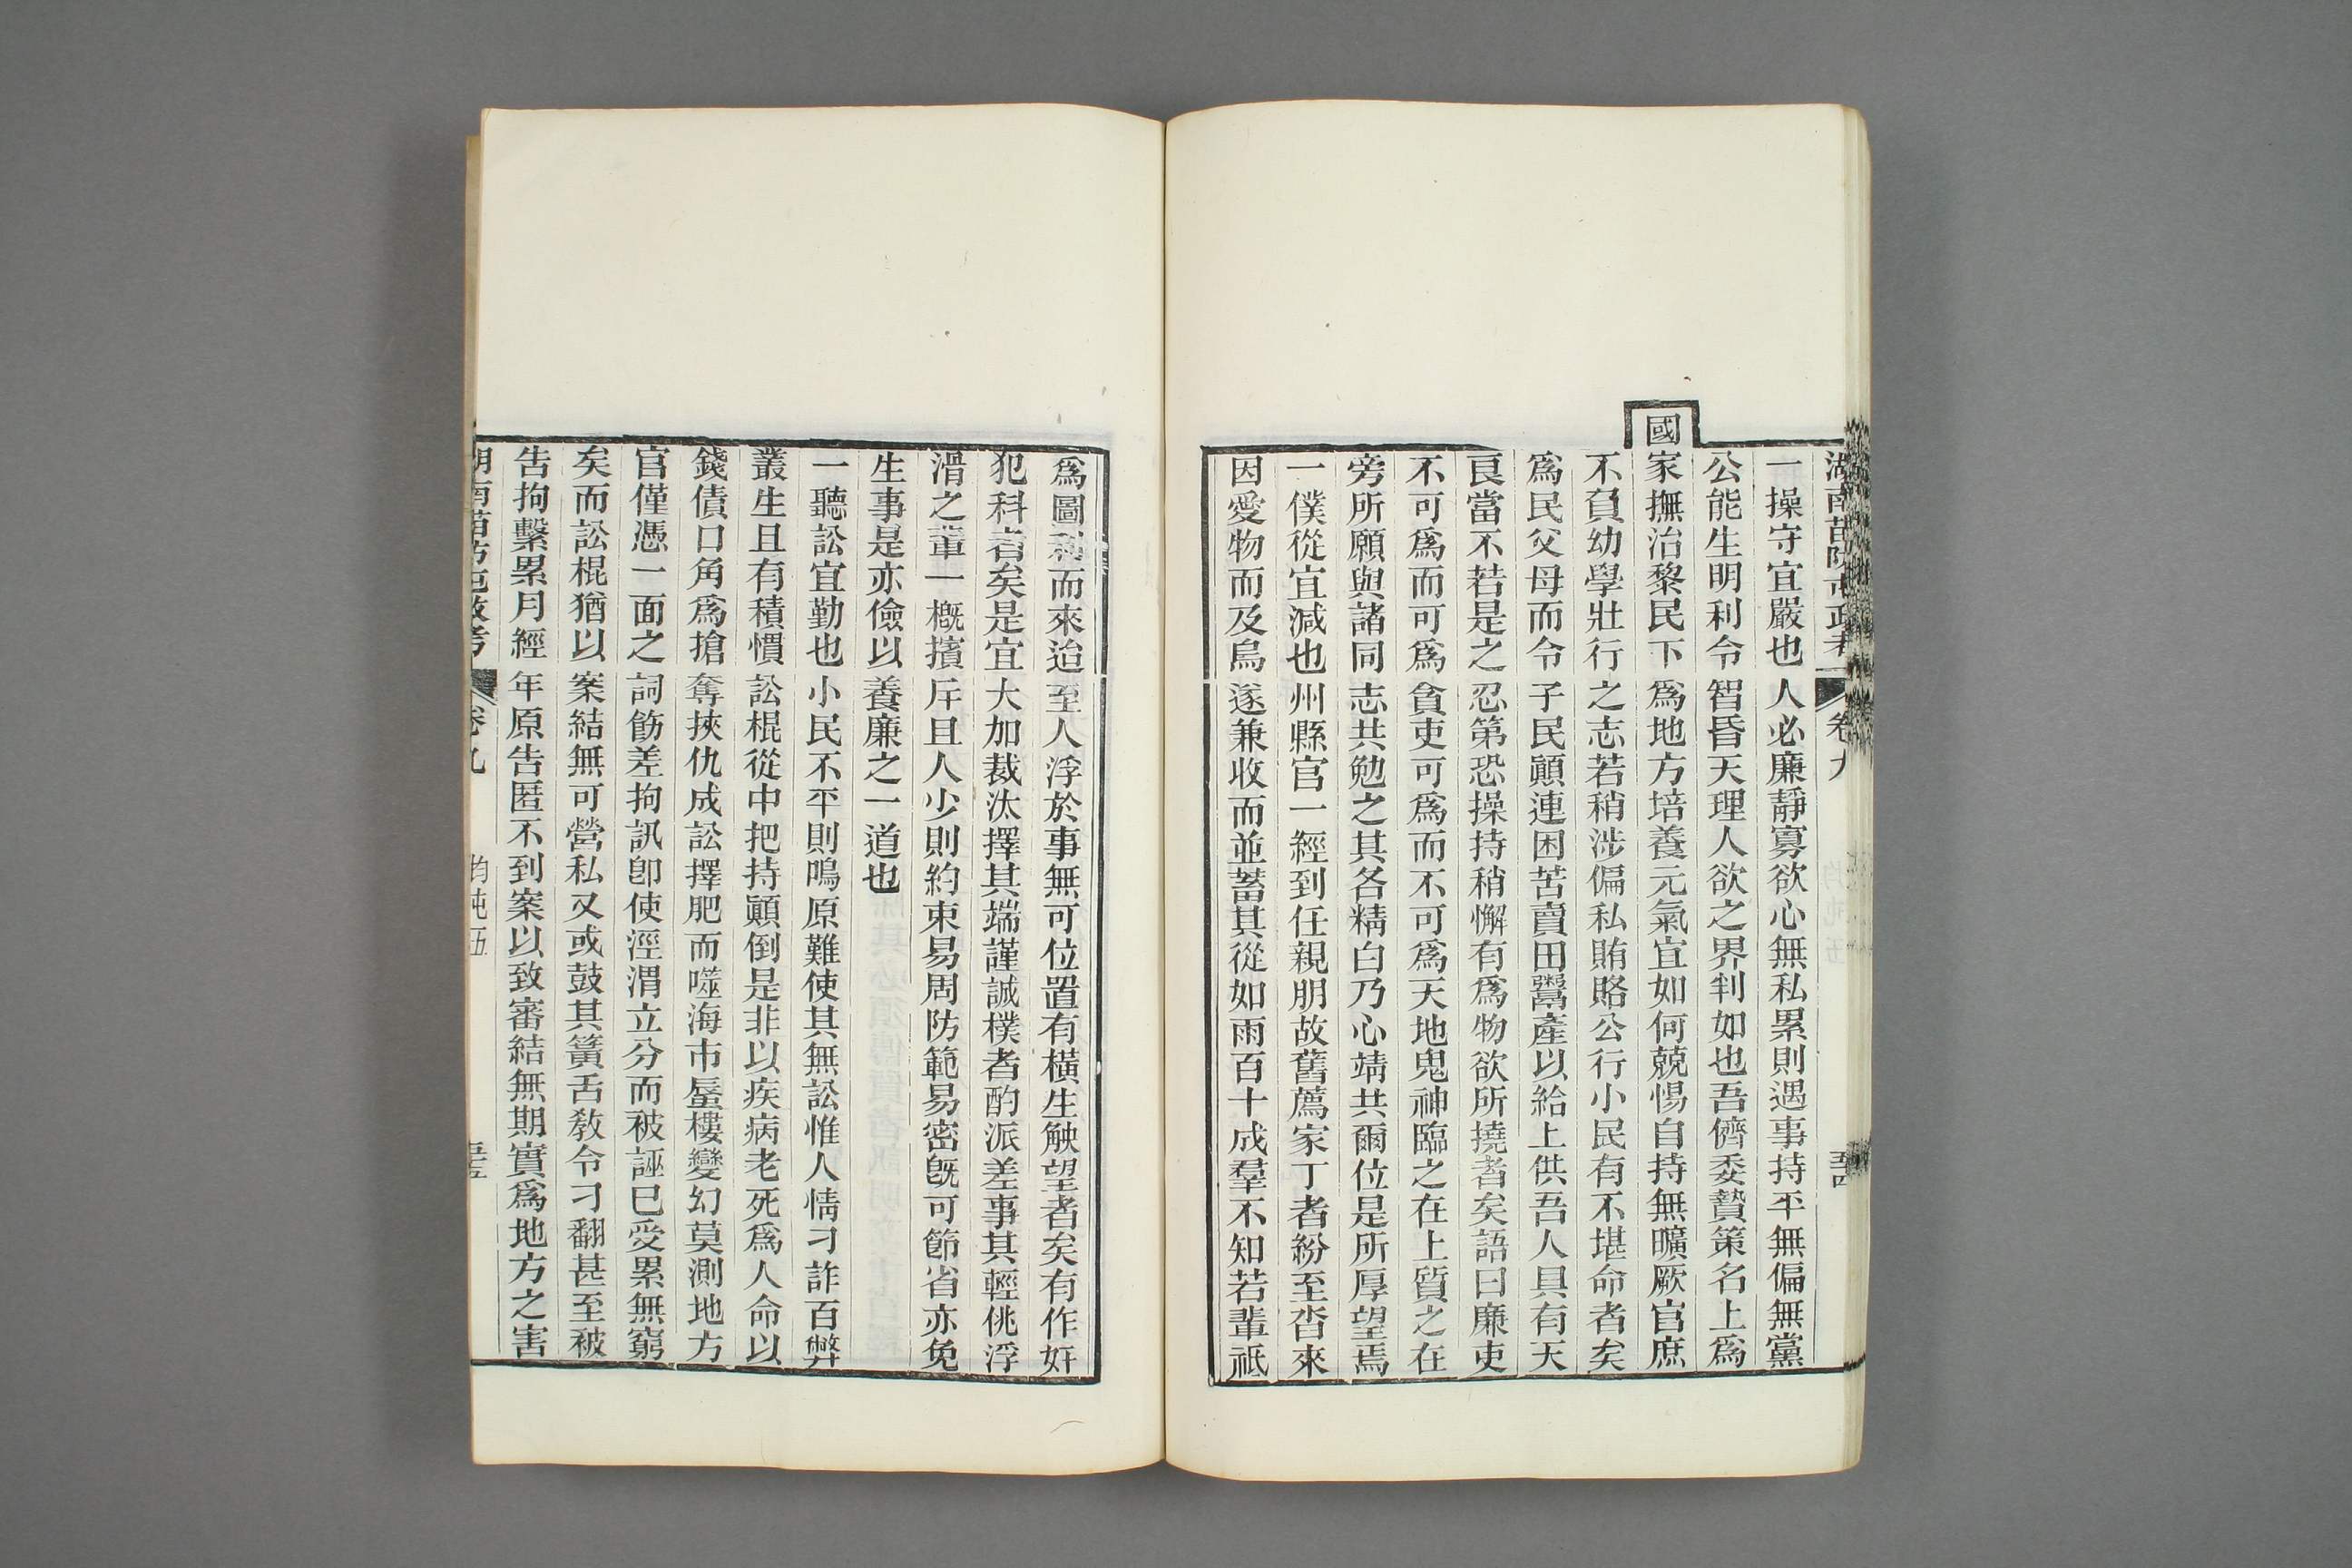 湖南苗防屯政考 卷九 均屯五 五十四
一操守宜嚴也人必廉靜寡欲心無私累則遇事持平無偏無黨
公能生明利令智昏天理人欲之界判如也吾儕委贄策名上爲
國家撫治黎民下爲地方培養元氣宜如何兢惕自持無曠厥官庶
不負幼學壯行之志若稍涉偏私賄賂公行小民有不堪命者矣
爲民父母而令子民顚連困苦賣田鬻產以給上供吾人具有天
良當不若是之忍第恐操持稍懈有爲物欲所撓者矣語曰廉吏
不可爲而可爲貪吏可爲而不可爲天地鬼神臨之在上質之在
旁所願與諸同志共勉之其各精白乃心靖共爾位是所厚望焉
一僕從宜減也州縣官一經到任親朋故舊薦家丁者紛至沓來
因愛物而及烏遂兼收而並蓄其從如雨百十成羣不知若輩祗
爲圖利而來迨至人浮於事無可位置有橫生觖望者矣有作奸
犯科者矣是宜大加裁汰擇其端謹誠樸者酌派差事其輕佻浮
滑之輩一概擯斥且人少則約束易周防範易密旣可節省亦免
生事是亦儉以養廉之一道也
一聽訟宜勤也小民不平則鳴原難使其無訟惟人情刁詐百弊
叢生且有積慣訟棍從中把持顚倒是非以疾病老死爲人命以
錢債口角爲搶奪挾仇成訟擇肥而噬海市蜃樓變幻莫測地方
官僅憑一面之詞飭差拘訊卽使涇渭立分而被誣已受累無窮
矣而訟棍猶以案結無可營私又或鼓其簧舌敎令刁翻甚至被
告拘繫累月經年原告匿不到案以致審結無期實爲地方之害
湖南苗防屯政考 卷九 均屯五 五十五